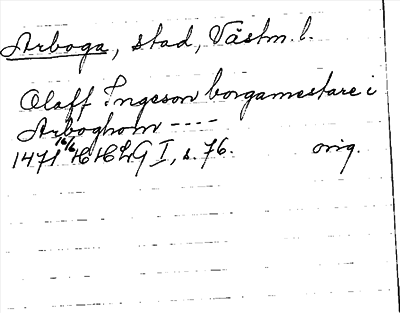 Arboga, stad, Västm. l.
Olaff Ingeson borgamestare i
Arboghom ----
1471 16/6 HHLG I, s. 76. orig.